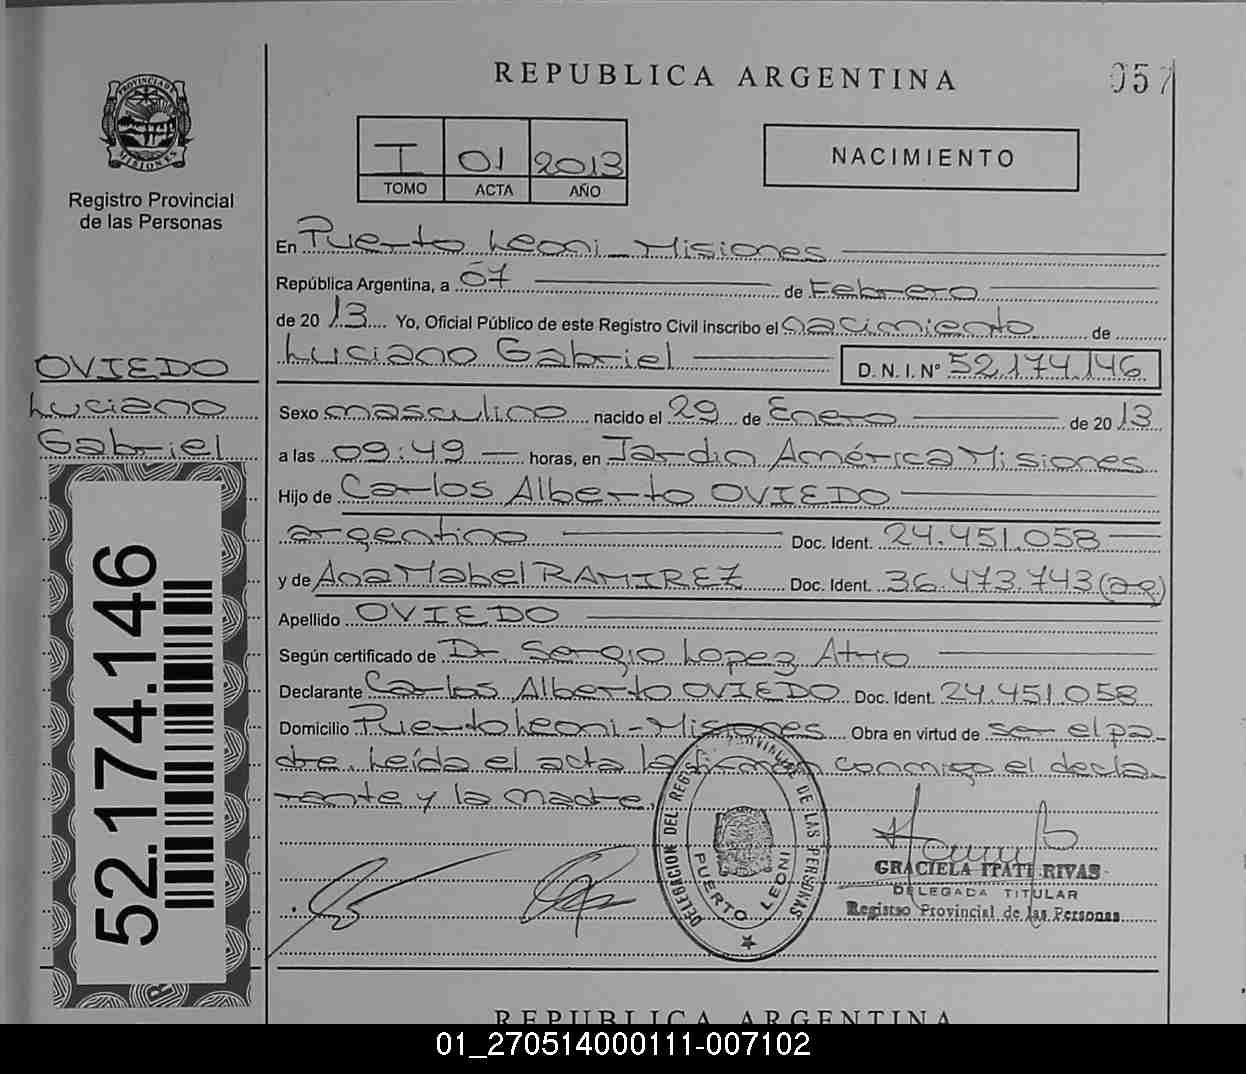 REPUBLICA ARGENTINA
057
PROVINCIA DE MISIONES
Registro Provincial
de las Personas
I 01 2013
TOMO ACTA AÑO
NACIMIENTO
En Puerto Leoni - Misiones
República Argentina, a 07 de Febrero
de 2013 Yo, Oficial Público de este Registro Civil inscribo el nacimiento de
Luciano Gabriel D. N. I. Nº 52.174.146
OVIEDO
Luciano
Gabriel
Sexo masculino nacido el 29 de Enero de 2013
a las 09:49 horas, en Jardin América Misiones
Hijo de Carlos Alberto OVIEDO
argentino Doc. Ident. 24.451.058
y de Ana Mabel RAMIREZ Doc. Ident. 36.473.743 (ar)
Apellido OVIEDO
Según certificado de Dr Sergio Lopez Atrio
Declarante Carlos Alberto OVIEDO Doc. Ident. 24.451.058
Domicilio Puerto Leoni - Misiones Obra en virtud de ser el pa-
dre. Leída el acta la firman conmigo el decla-
rante y la madre.
52.174.146
DELEGACION DEL REG. PROVINCIAL DE LAS PERSONAS
PUERTO LEONI
GRACIELA ITATI RIVAS
DELEGADA TITULAR
Registro Provincial de las Personas
REPUBLICA ARGENTINA
01_270514000111-007102